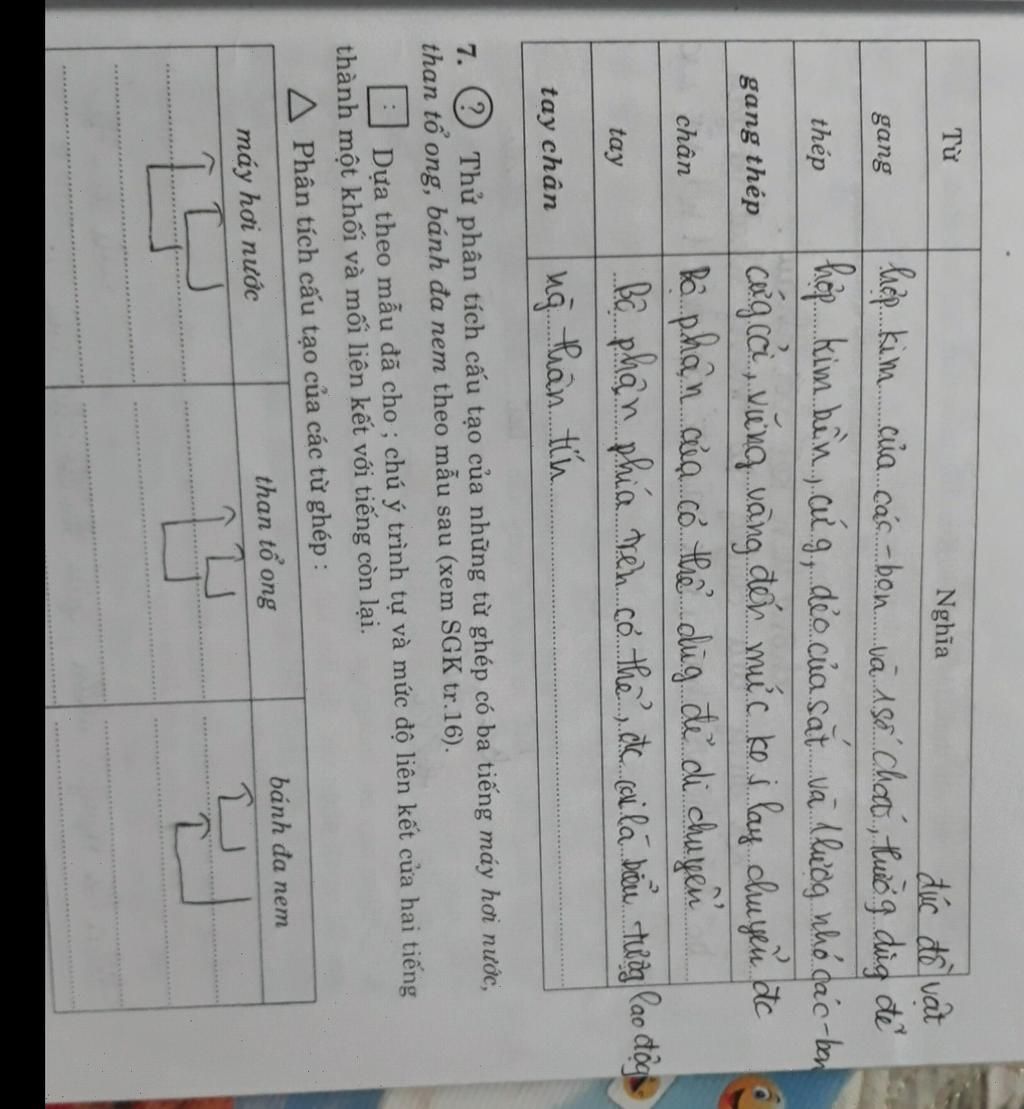 Từ Nghĩa
đúc đồ vật
gang hợp kim của các-bon và 1 số chất, thường dùg để
thép hợp kim bền, cứg, dẻo của sắt và 1 lượng nhỏ các-bon
gang thép cứg cỏi, vững vàng đến mức ko j lay chuyển đc
chân Bộ phận của cơ thể dùg để di chuyển
tay Bộ phận phía trên cơ thể, đc coi là biểu tượg lao độg
tay chân ng thân tín
7. ? Thử phân tích cấu tạo của những từ ghép có ba tiếng máy hơi nước,
than tổ ong, bánh đa nem theo mẫu sau (xem SGK tr.16).
: Dựa theo mẫu đã cho ; chú ý trình tự và mức độ liên kết của hai tiếng
thành một khối và mối liên kết với tiếng còn lại.
△ Phân tích cấu tạo của các từ ghép :
máy hơi nước than tổ ong bánh đa nem